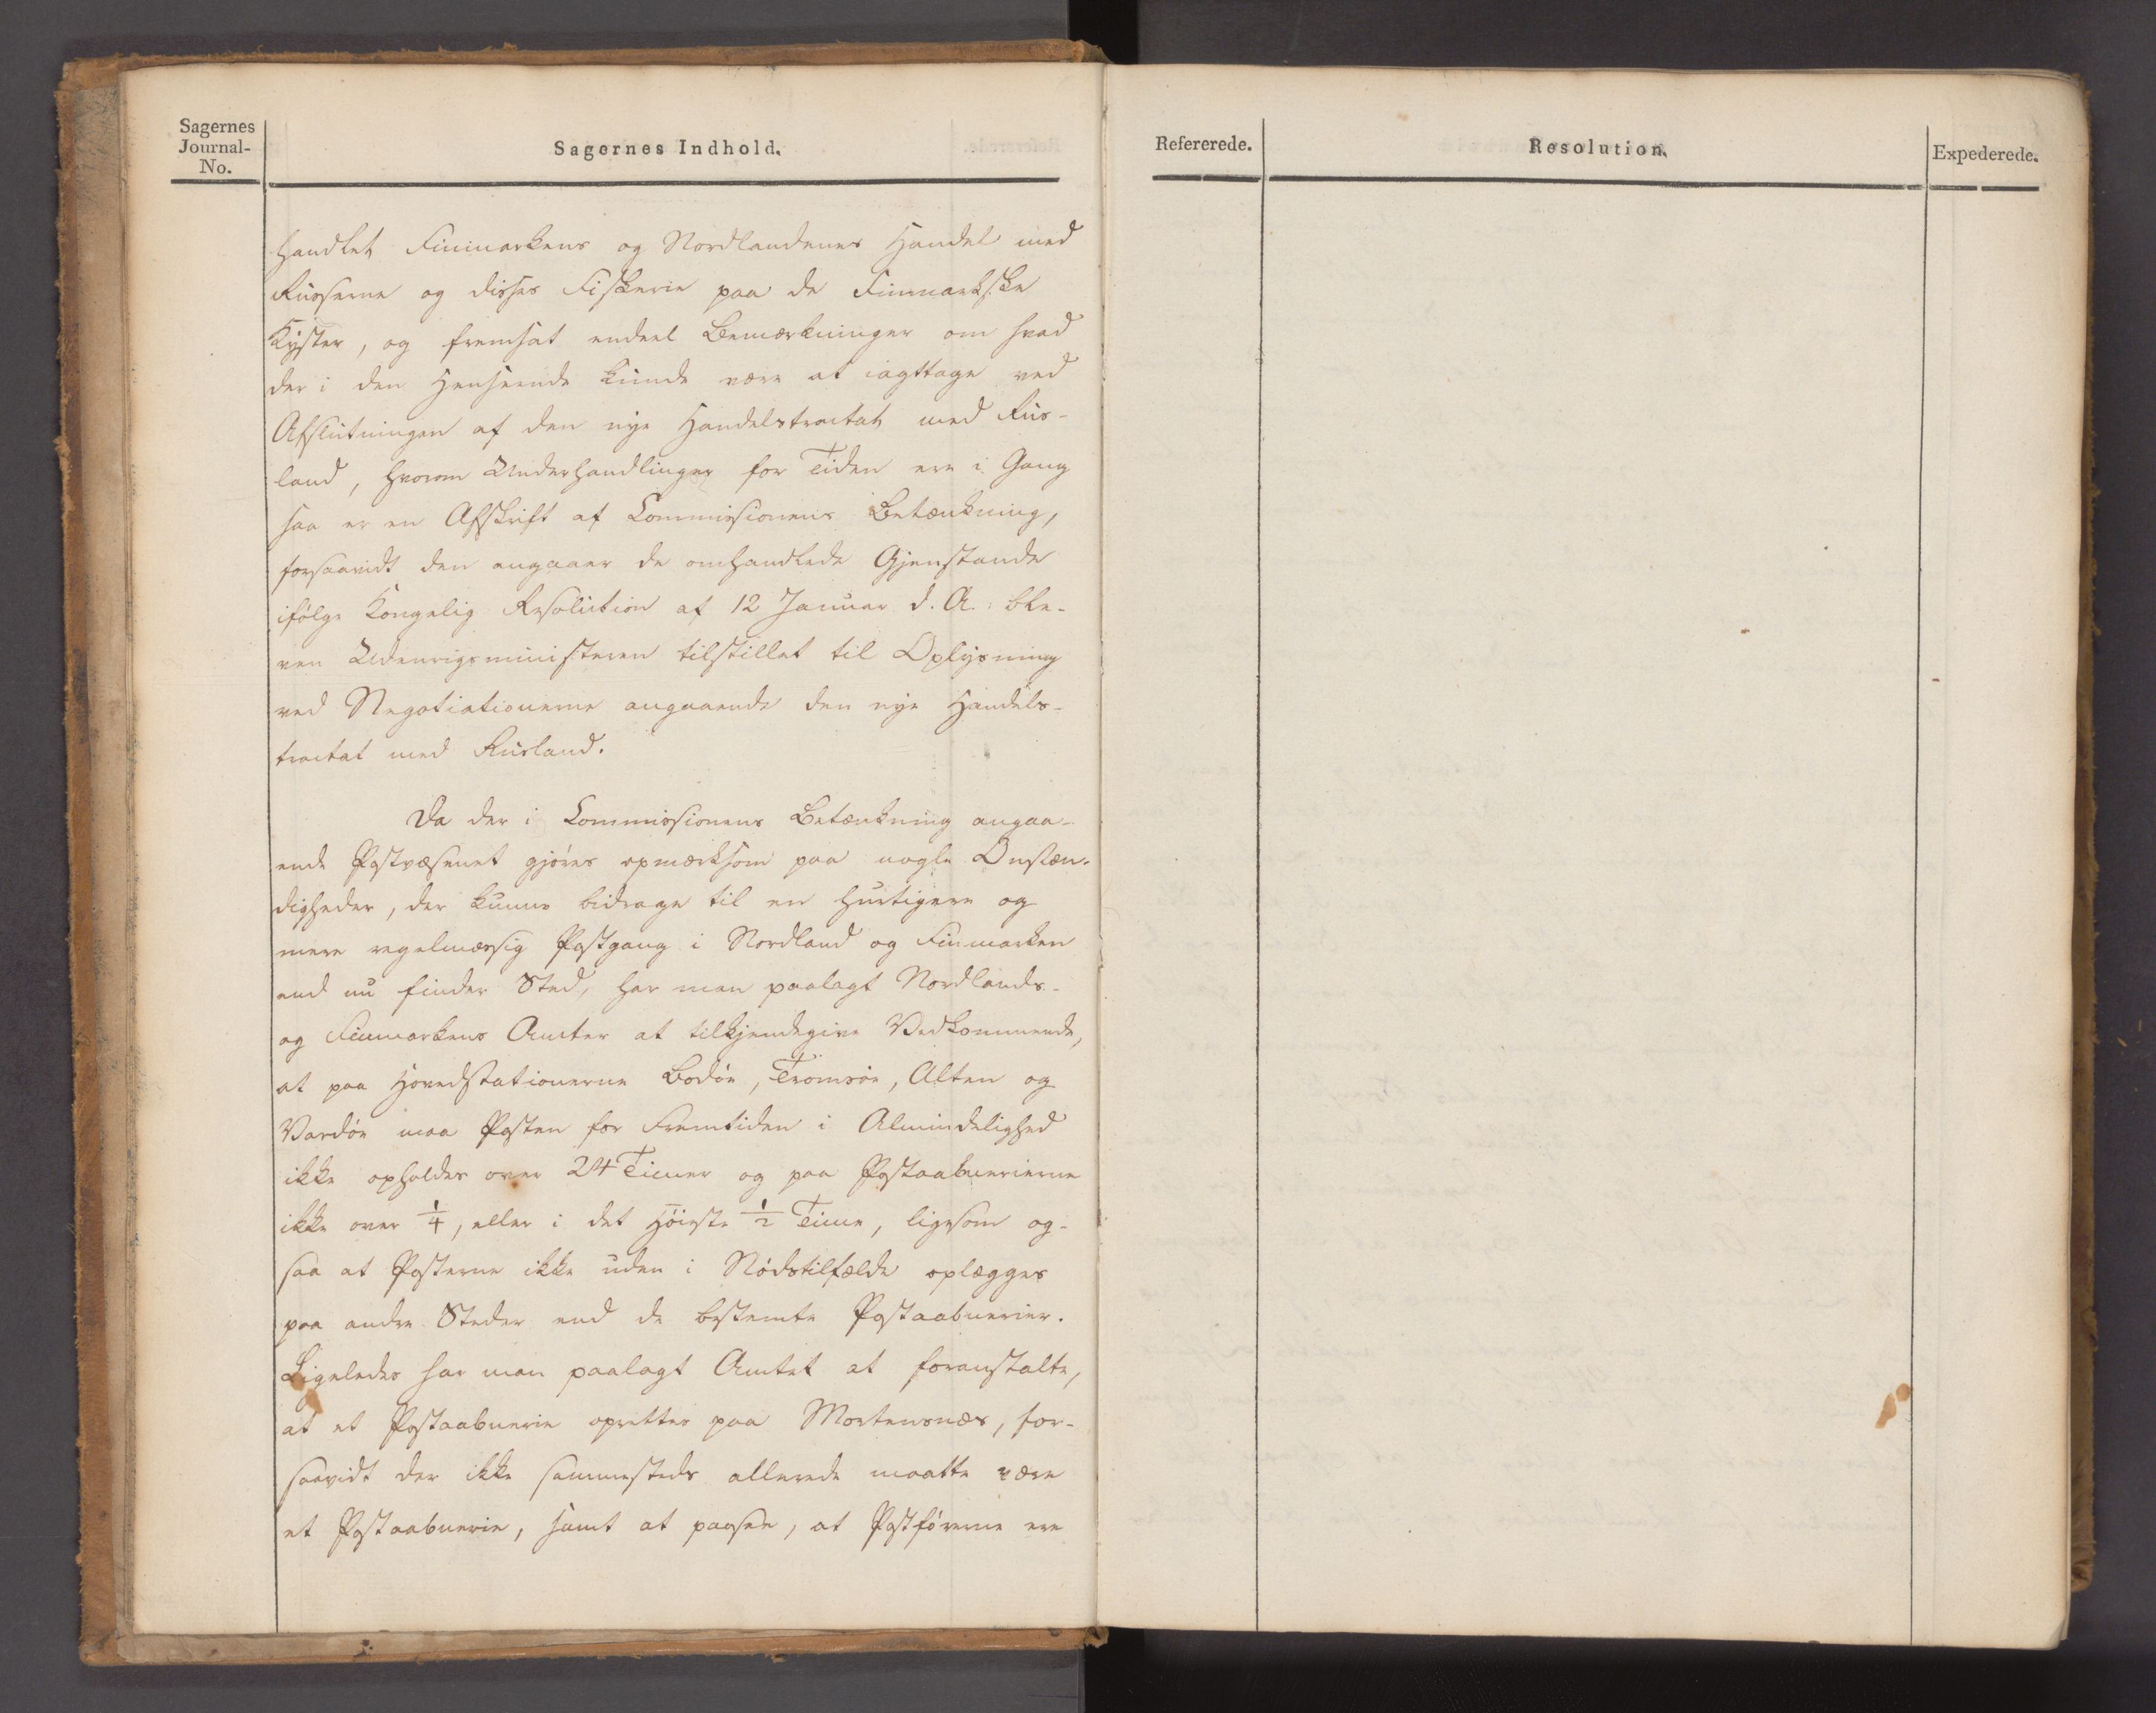 Sagernes
Journal-
No.
Sagernes Indhold.
Refererede.
Resolution.
Expederede.
handlet Finmarkens og Nordlandenes Handel med
Russerne og disses Fiskerie paa de Finmarkske
Kyster, og fremsat endeel Bemærkninger om hvad
der i den Henseende kunde være at iagttage ved
Afslutningen af den nye Handelstractat med Rus-
land, hvorom Underhandlinger for Tiden ere i Gang
saa er en Afskrift af Commissionens Betænkning,
forsaavidt den angaaer de omhandlede Gjenstande
ifølge Kongelig Resolution af 12 Januar d. A. ble-
ven Udenrigsministeren tilstillet til Oplysning
ved Negotiationerne angaaende den nye Handels-
tractat med Rusland.
Da der i Commissionens Betænkning angaa-
ende Postvæsenet gjøres opmærksom paa nogle Omstæn-
digheder, der kunne bidrage til en hurtigere og
mere regelmæssig Postgang i Nordland og Finmarken
end nu finder Sted, har man paalagt Nordlands-
og Finmarkens Amter at tilkjendegive Vedkommende,
at paa Hovedstationerne Bodøe, Tromsøe, Alten og
Vardøe maa Posten for Fremtiden i Almindelighed
ikke opholdes over 24 Timer og paa Postaabnerierne
ikke over 1/4, eller i det Høieste 1/2 Time, ligesom og-
saa at Posterne ikke uden i Nødstilfælde oplægges
paa andre Steder end de bestemte Postaabnerier.
Ligeledes har man paalagt Amtet at foranstalte,
at et Postaabnerie oprettes paa Mortensnæs, for-
saavidt der ikke sammesteds allerede maatte være
et Postaabnerie, samt at paasee, at Postførerne ere